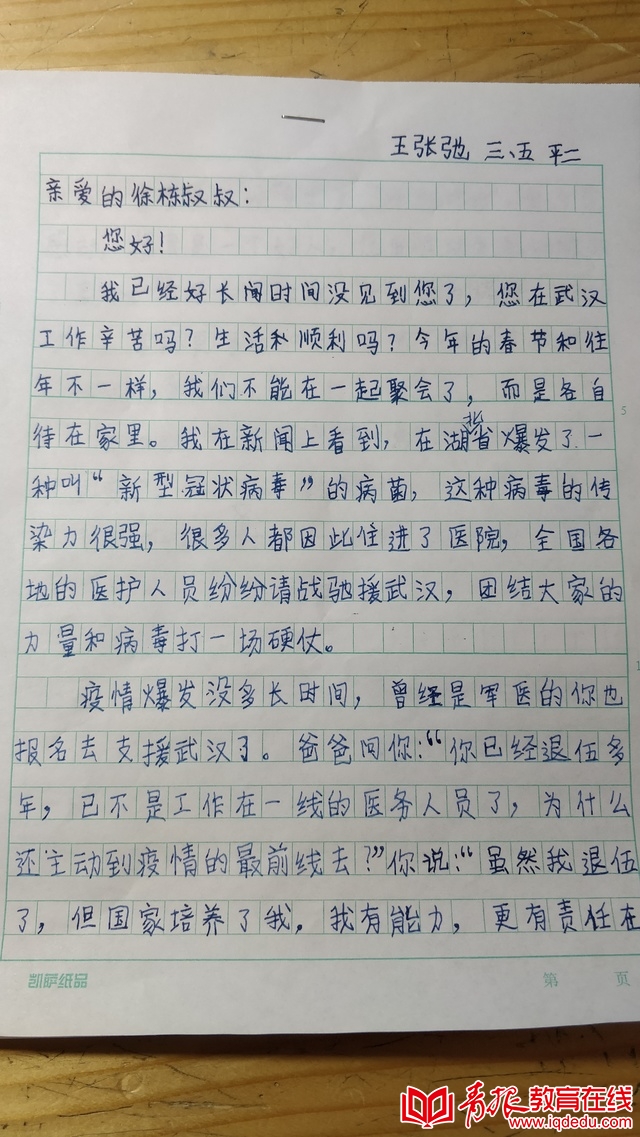 王张弛 三、五 平二
亲爱的徐栋叔叔：
您好！
我已经好长间时间没见到您了，您在武汉
工作辛苦吗？生活和顺利吗？今年的春节和往
年不一样，我们不能在一起聚会了，而是各自
待在家里。我在新闻上看到，在湖北省爆发了一
种叫“新型冠状病毒”的病菌，这种病毒的传
染力很强，很多人都因此住进了医院，全国各
地的医护人员纷纷请战驰援武汉，团结大家的
力量和病毒打一场硬仗。
疫情爆发没多长时间，曾经是军医的你也
报名去支援武汉了。爸爸问你：“你已经退伍多
年，已不是工作在一线的医务人员了，为什么
还主动到疫情的最前线去？”你说：“虽然我退伍
了，但国家培养了我，我有能力，更有责任在
凯萨纸品 第 页
5
1
青报教育在线
www.iqdedu.com